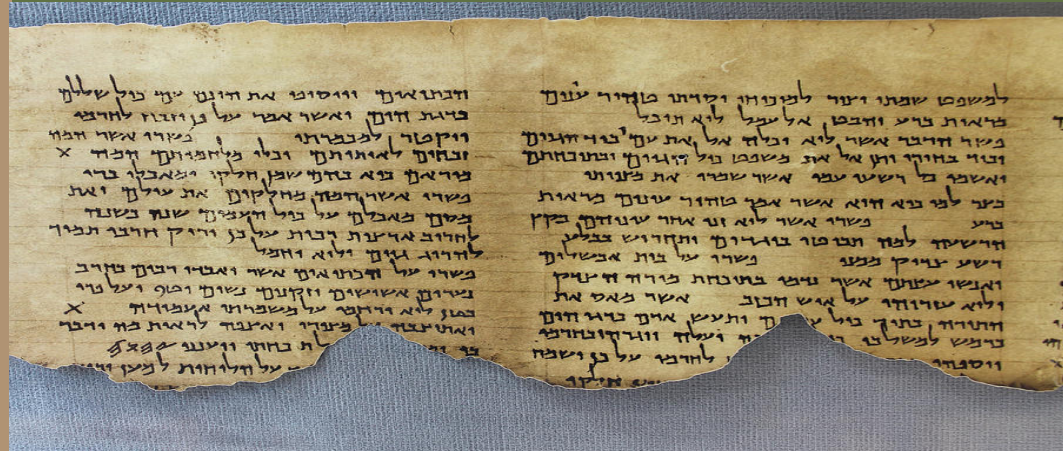 למשפט שמתו וצור למוכיחו יסדתו טהור עינים
מראות ברע והבט אל עמל לוא תוכל
פשר הדבר אשר לוא יכלה אל את עמו ביד הגוים
וביד בחירו יתן אל את משפט כול הגוים ובתוכחתם
יאשמו כל רשעי עמו אשר שמרו את מצוותו
בצר למו כיא הוא אשר אמר טהור עינים מראות
ברע פשרו אשר לוא זנו אחר עיניהם בקץ
הרשעה למה תביטו בוגדים ותחריש בבלע
רשע צדיק ממנו פשרו על בית אבשלום
ואנשי עצתם אשר נדמו בתוכחת מורה הצדק
ולוא עזרוהו על איש הכזב אשר מאס את
התורה בתוך כול ותעש אדם כדגי הים
כרמש למשל בו יעלה ויגרהו בחרמו
לחרמו על כן ישמח
חלקו
הכתיאים ויוסיפו את הונם עם כול שללם
כדגת הים ואשר אמר על כן יזבח לחרמו
ויקטר למכמרתו פשרו אשר המה
זבחים לאותותם וכלי מלחמותם המה X
מוראם כיא בהם שמן חלקו ומאכלו ברי
פשרו אשר המה מחלקים את עולם ואת
מסם מאכלם על כול העמים שנה בשנה
לחריב ארצות רבות על כן יריק חרבו תמיד
להרוג גוים ולוא יחמל
פשרו על הכתיאים אשר יאבדו רבים בחרב
נערים אשישים וזקנים נשים וטף ועל פרי
בטן לוא ירחמו על משמרתי אעמודה X
ואתיצבה על מצורי ואצפה לראות מה ידבר
בי ויענני 𐤉𐤄𐤅𐤄
על הלוחות למען